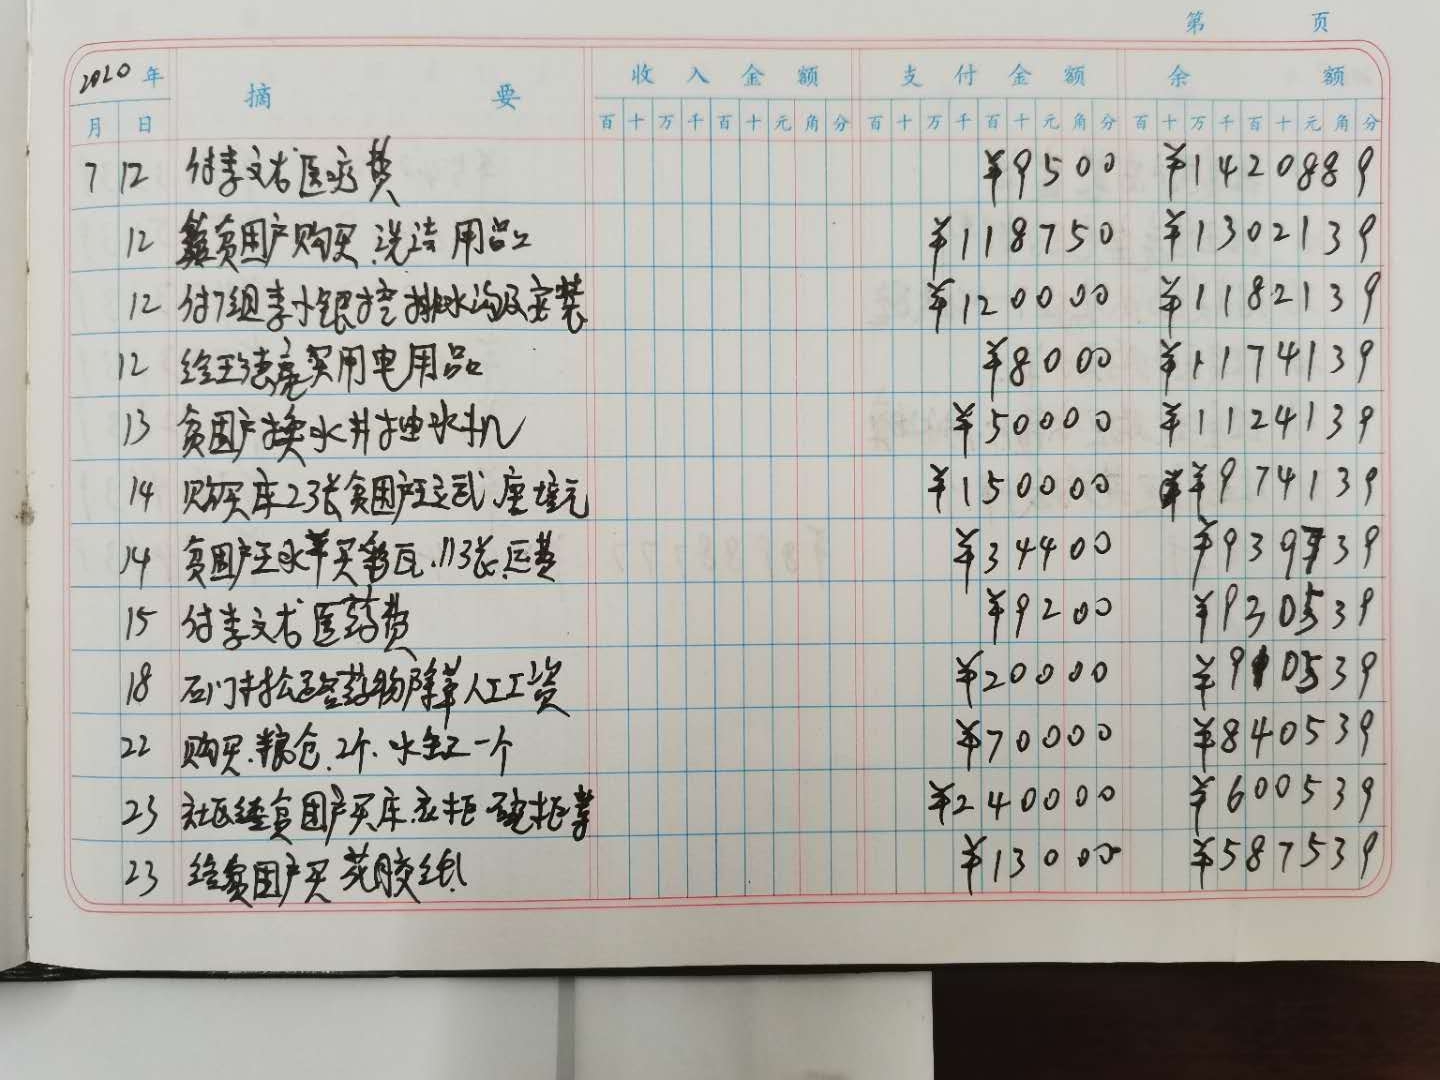 第 页
2020年 摘 要 收入金额 支付金额 余 额
月 日 百十万千百十元角分 百十万千百十元角分 百十万千百十元角分
7 12 付李文书医疗费 ¥9500 ¥1420889
12 贫困户购买.洗洁用品 ¥118750 ¥1302139
12 付7组李小银挖排水沟及安装 ¥120000 ¥1182139
12 给王德 买用电用品 ¥8000 ¥1174139
13 贫困户换水井抽水机 ¥50000 ¥1124139
14 购买床23张贫困户王 ¥150000 ¥974139
14 贫困户王水平买彩瓦.113张.运费 ¥34400 ¥939739
15 付李文书医药费 ¥9200 ¥930539
18 石门村松 药物除草人工工资 ¥20000 ¥910539
22 购买.粮仓.2个.水缸一个 ¥70000 ¥840539
23 社区 贫困户买床.衣柜 碗柜等 ¥240000 ¥600539
23 给贫困户买花胶纸 ¥13000 ¥587539